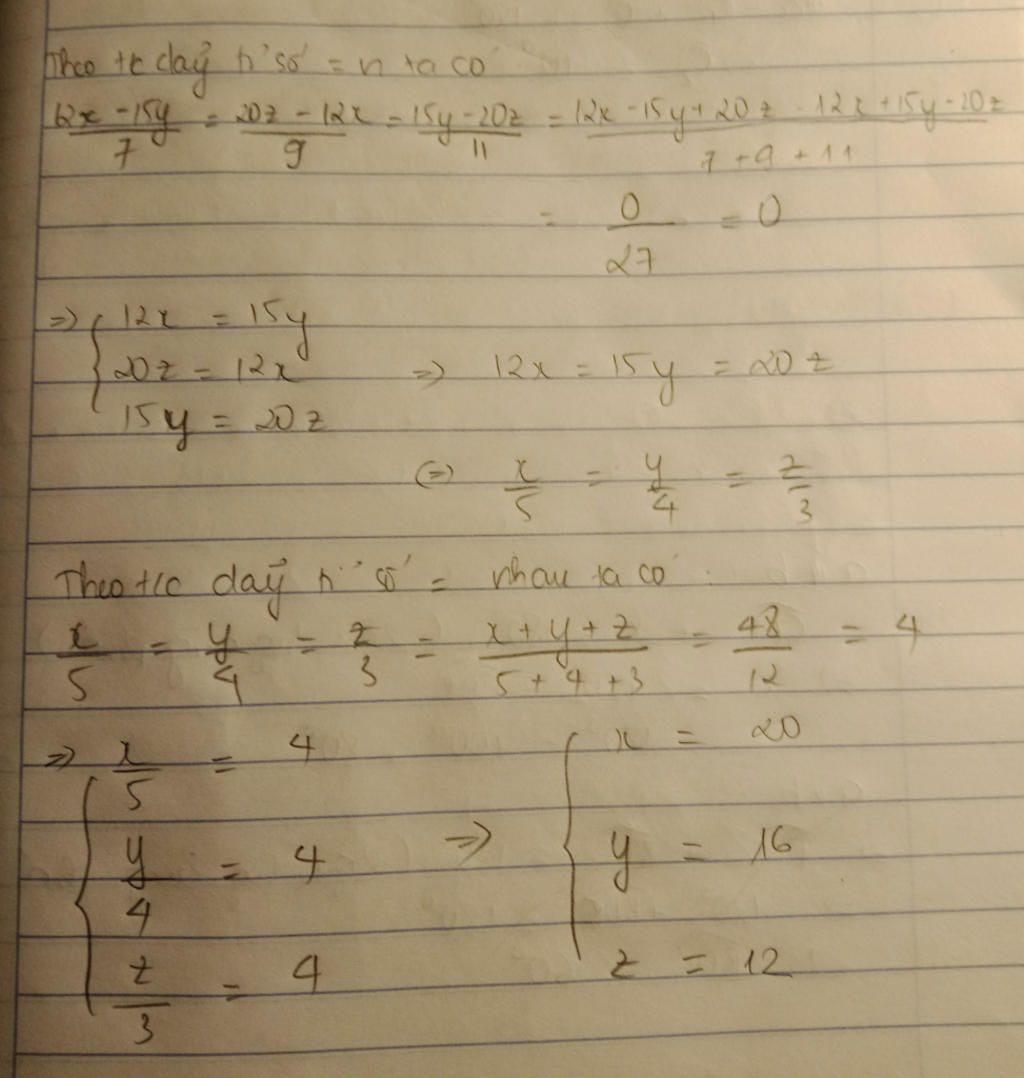 Theo tc dãy tỉ số = n ta có
12x - 15y / 7 = 20z - 12x / 9 = 15y - 20z / 11 = 12x - 15y + 20z - 12x + 15y - 20z / 7 + 9 + 11
= 0 / 27 = 0
=> { 12x = 15y
20z = 12x => 12x = 15y = 20z
15y = 20z
(=) x/5 = y/4 = z/3
Theo t/c dãy tỉ số = nhau ta có :
x/5 = y/4 = z/3 = x + y + z / 5 + 4 + 3 = 48 / 12 = 4
=> { x/5 = 4 { x = 20
y/4 = 4 => y = 16
z/3 = 4 z = 12